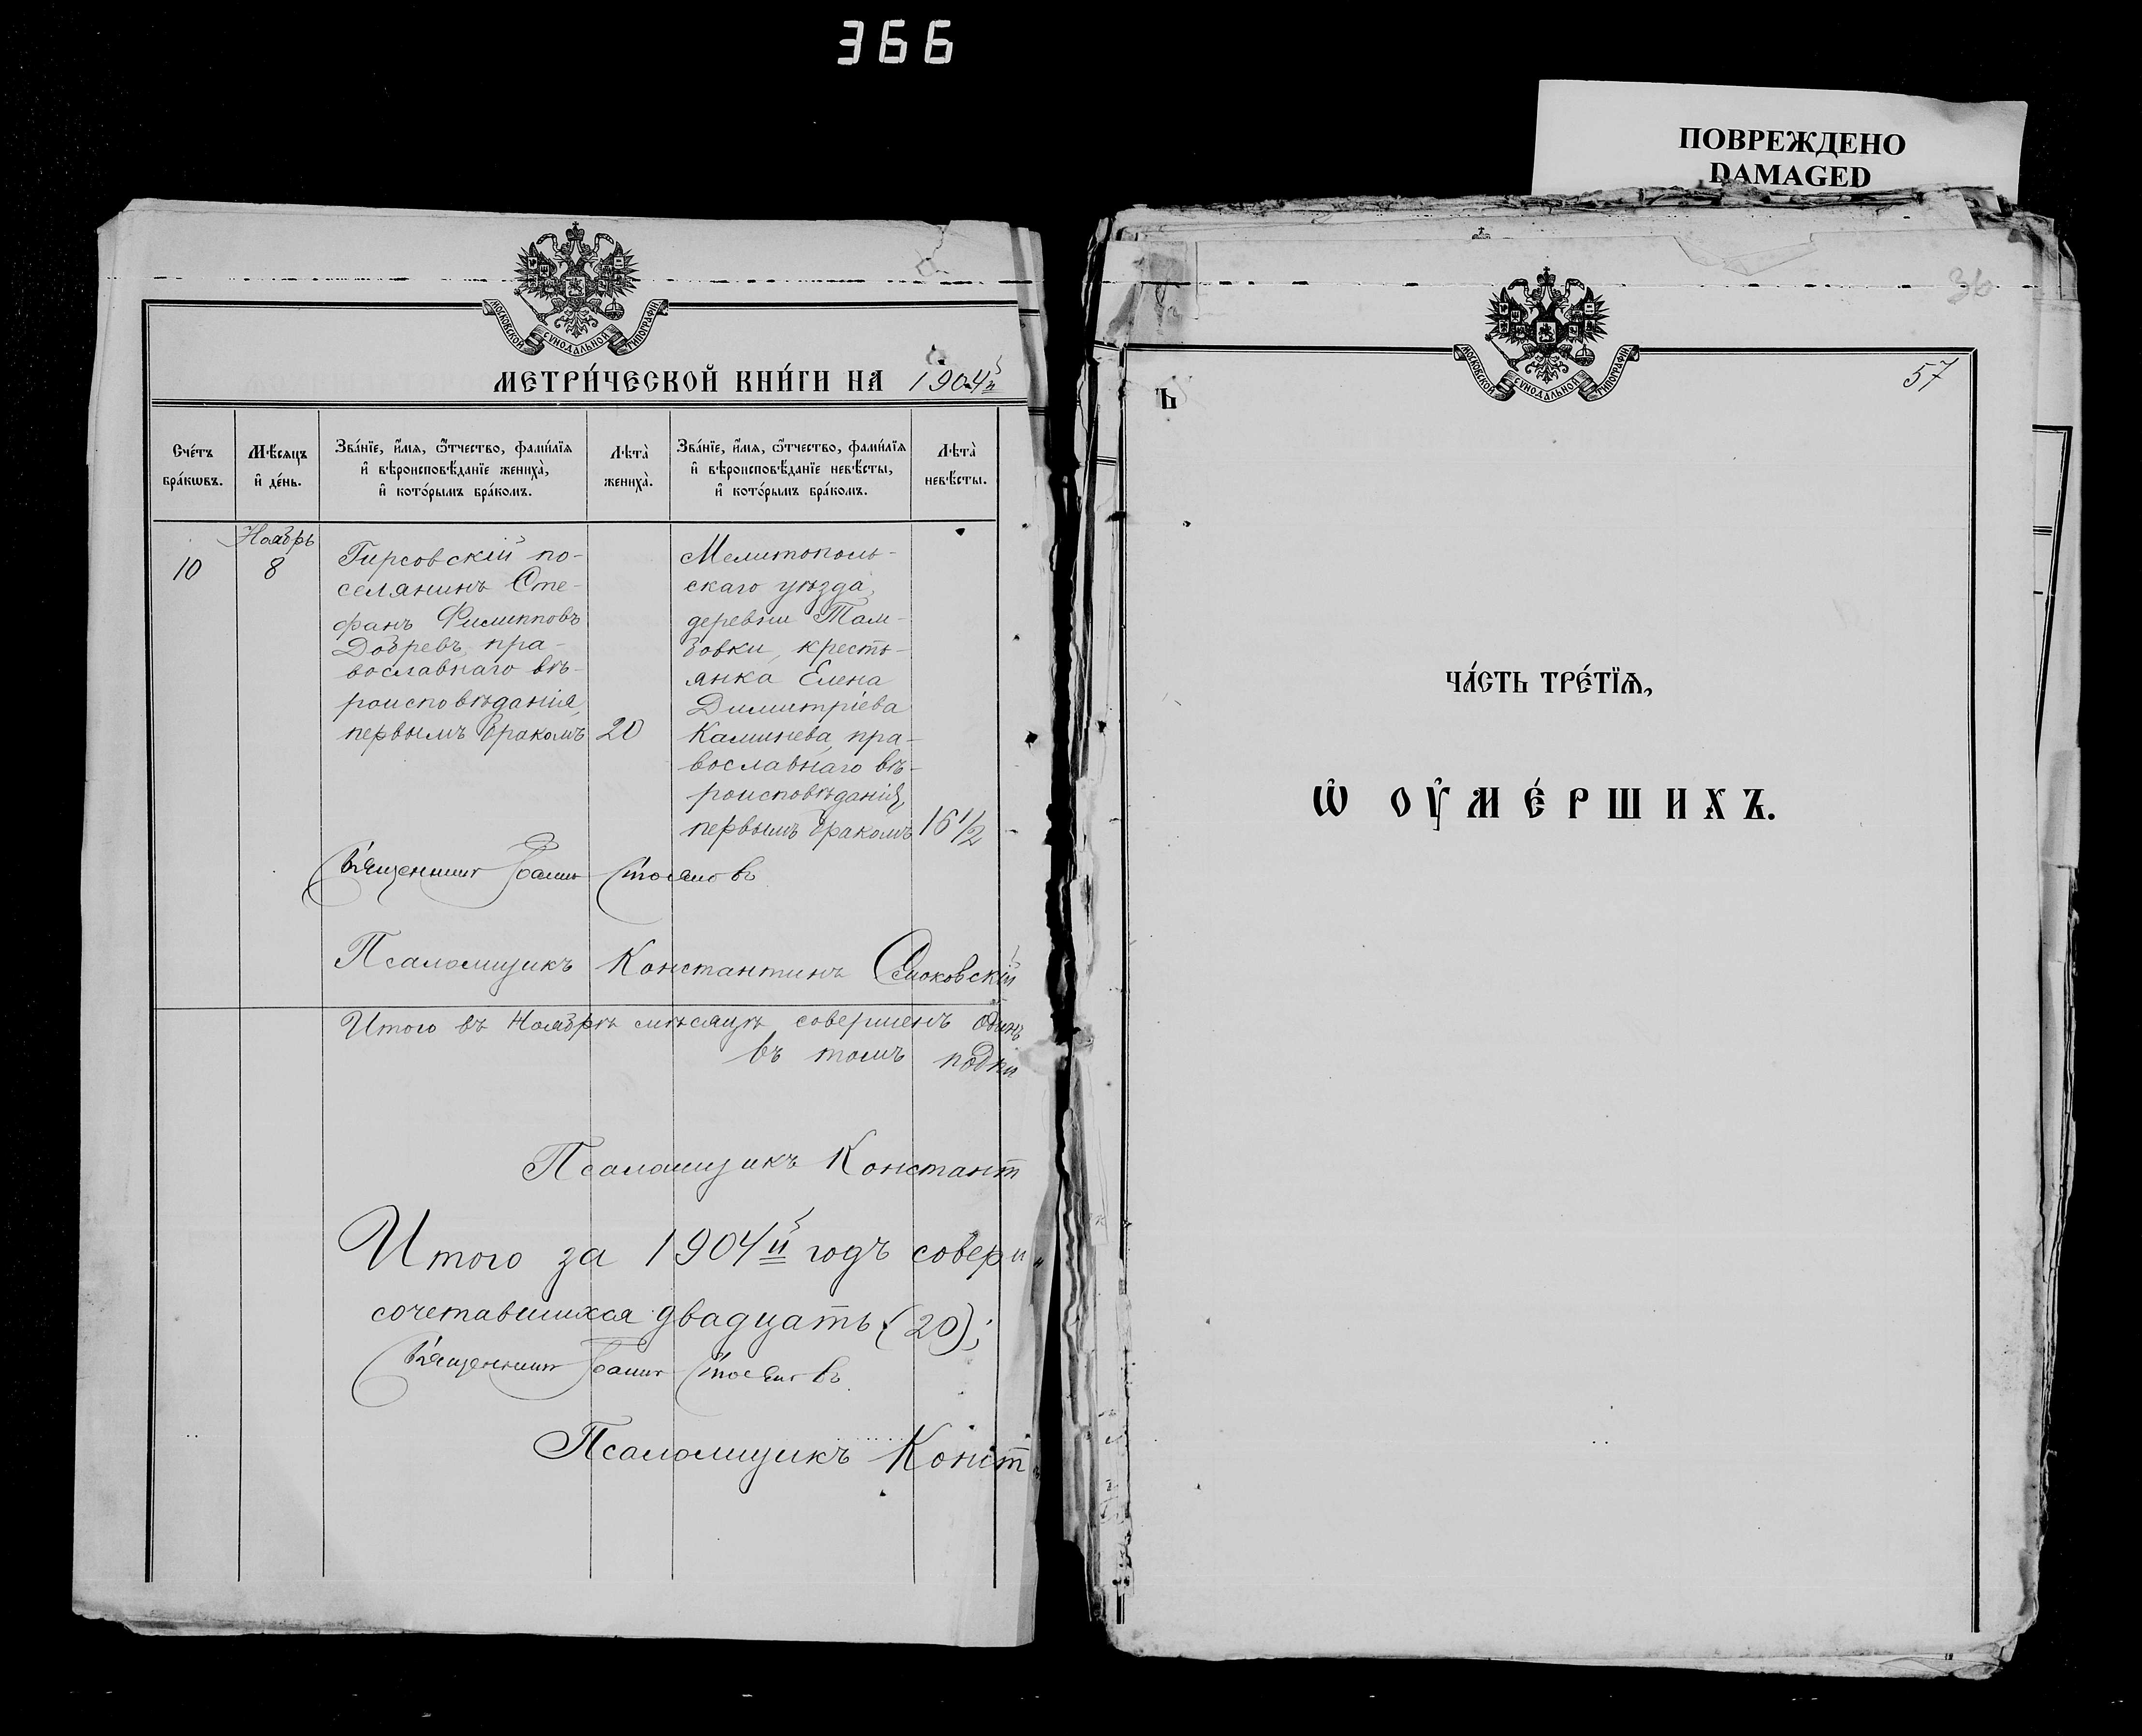 366
ПОВРЕЖДЕНО
DAMAGED
МОСКОВСКОЙ СѴНОДАЛЬНОЙ ТИПОГРАФІИ
МЕТРИ́ЧЕСКОЙ КНИ́ГИ НА 1904й
Сче́тъ бра́кωвъ.
Мѣ́сяцъ и҆ де́нь.
Зва́нїе, и҆́мѧ, ѻ҆́тчество, фами́лїѧ и҆ вѣроисповѣ́данїе жениха̀, и҆ кото́рымъ бра́комъ.
Лѣта̀ жениха̀.
Зва́нїе, и҆́мѧ, ѻ҆́тчество, фами́лїѧ и҆ вѣроисповѣ́данїе невѣ́сты, и҆ кото́рымъ бра́комъ.
Лѣта̀ невѣ́сты.
10
Ноябрь
8
Гирсовскій по-
селянинъ Сте-
фанъ Филипповъ
Добревъ, пра-
вославнаго вѣ-
роисповѣданія,
первымъ бракомъ
20
Мелитополь-
скаго уѣзда,
деревни Там-
бовки, кресть-
янка Елена
Димитріева
Калинева, пра-
вославнаго вѣ-
роисповѣданія,
первымъ бракомъ
16 1/2
Священникъ Іоаннъ Стояновъ
Псаломщикъ Константинъ
Итого въ Ноябрѣ мѣсяцѣ совершенъ одинъ
въ томъ подпи
Псаломщикъ Констант
Итого за 1904й годъ совер
сочетавшихся двадцать (20);
Священникъ Іоаннъ Стояновъ
Псаломщикъ Конст
36
МОСКОВСКОЙ СѴНОДАЛЬНОЙ ТИПОГРАФІИ
57
Ъ
ЧА́СТЬ ТРЕ́ТЇѦ,
Ѡ҆ ОУ҆МЕ́РШИХЪ.